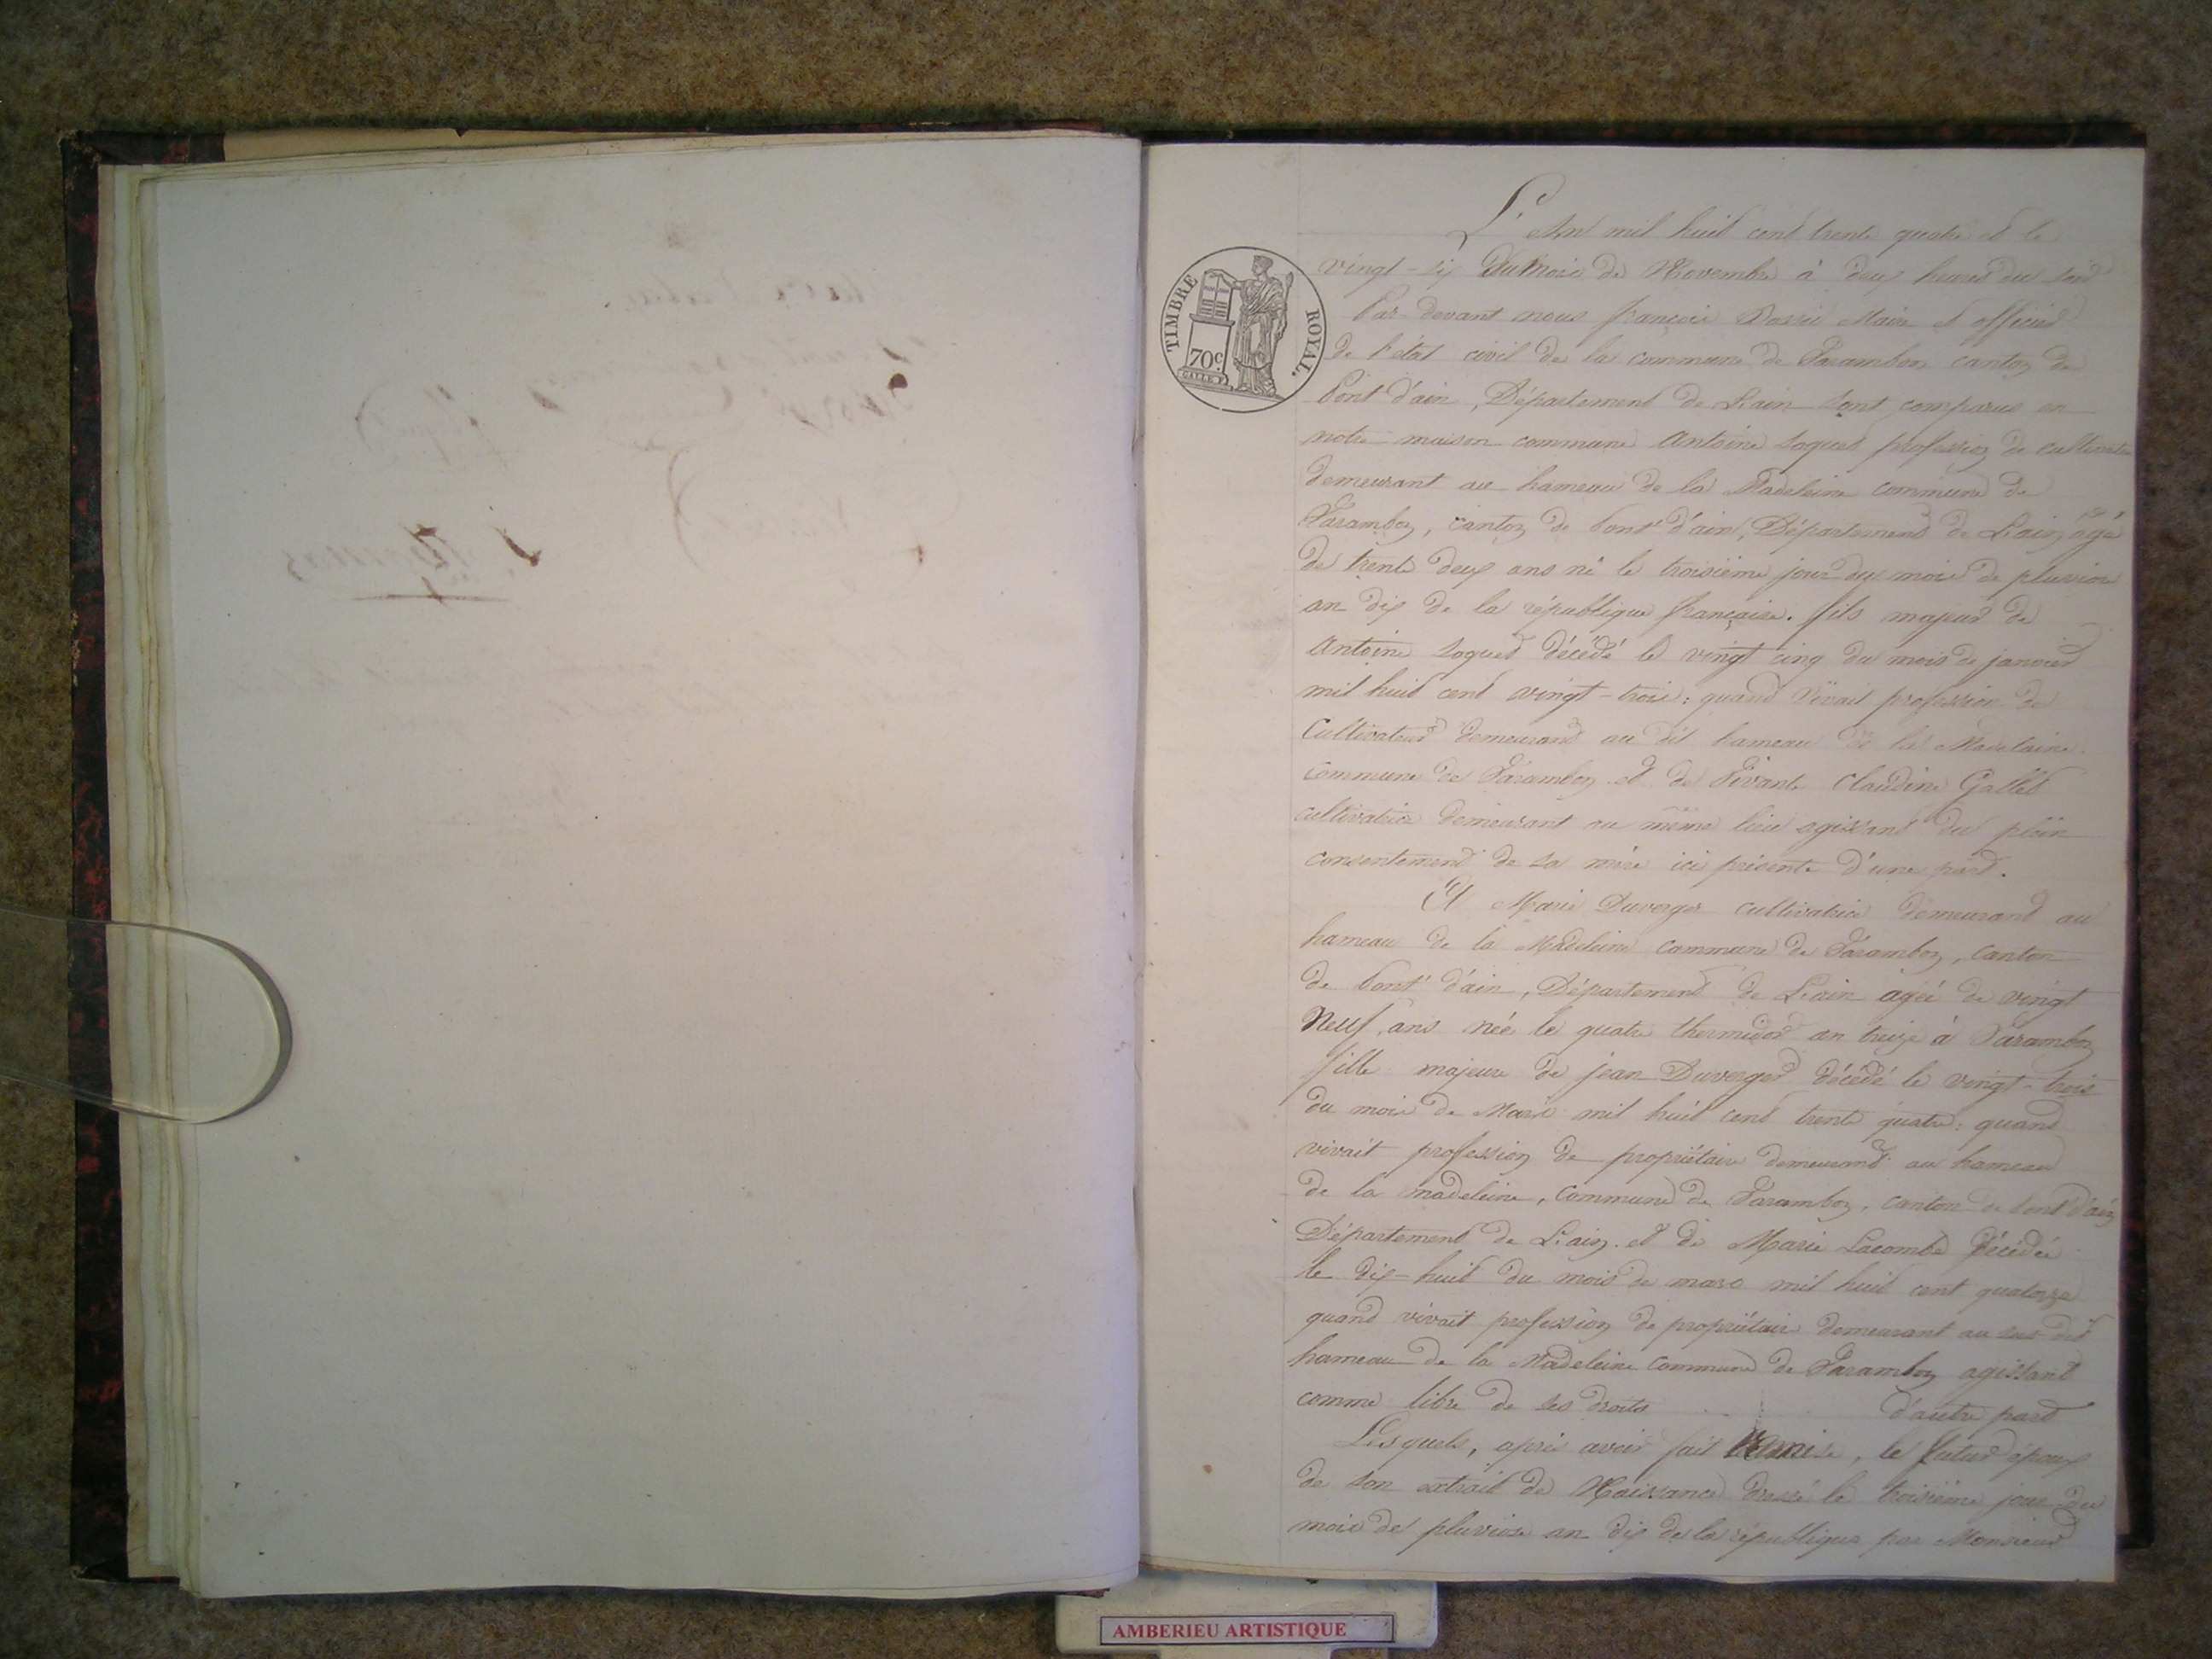 TIMBRE ROYAL.
70c.
L'An mil huit cent trente quatre et le
vingt-six du Mois de Novembre à deux heures du soir
Par devant nous françois Maire et officier
de l'état civil de la commune de Varambon canton de
Pont d'ain, Département de L'ain sont comparus en
notre maison commune Antoine Soquet profession de cultivateur
demeurant au hameau de la Madeleine commune de
Varambon, canton de Pont d'ain, Département de L'ain agé
de trente deux ans né le troisième jour du mois de pluviose
an dix de la république française. fils majeur de
Antoine Soquet décédé le vingt cinq du mois de janvier
mil huit cent vingt-trois: quand vivait profession de
Cultivateur demeurant au dit hameau de la Madelaine
commune de Varambon et de vivante Claudine Gallet
cultivatrice demeurant au même lieu agissant du plein
consentement de sa mère ici présente d'une part.
Et Marie Duverger cultivatrice demeurant au
hameau de la Madeleine commune de Varambon, canton
de Pont d'ain, Département de L'ain agée de vingt
Neuf ans née le quatre thermidor an treize à Varambon
fille majeure de jean Duverger décédé le vingt-trois
du mois de Mars mil huit cent trente quatre: quand
vivait profession de propriétaire demeurant au hameau
de la madeleine, commune de Varambon, canton de Pont d'ain
Département de L'ain. et de Marie Lacombe décédée
le dix-huit du mois de mars mil huit cent quatorze
quand vivait profession de propriétaire demeurant au sus dit
hameau de la Madeleine commune de Varambon agissant
comme libre de ses droits d'autre part
Lesquels, après avoir fait remise, le futur époux
de son extrait de Naissance dressé le troisième jour du
mois de pluviose an dix de la république par Monsieur
AMBERIEU ARTISTIQUE